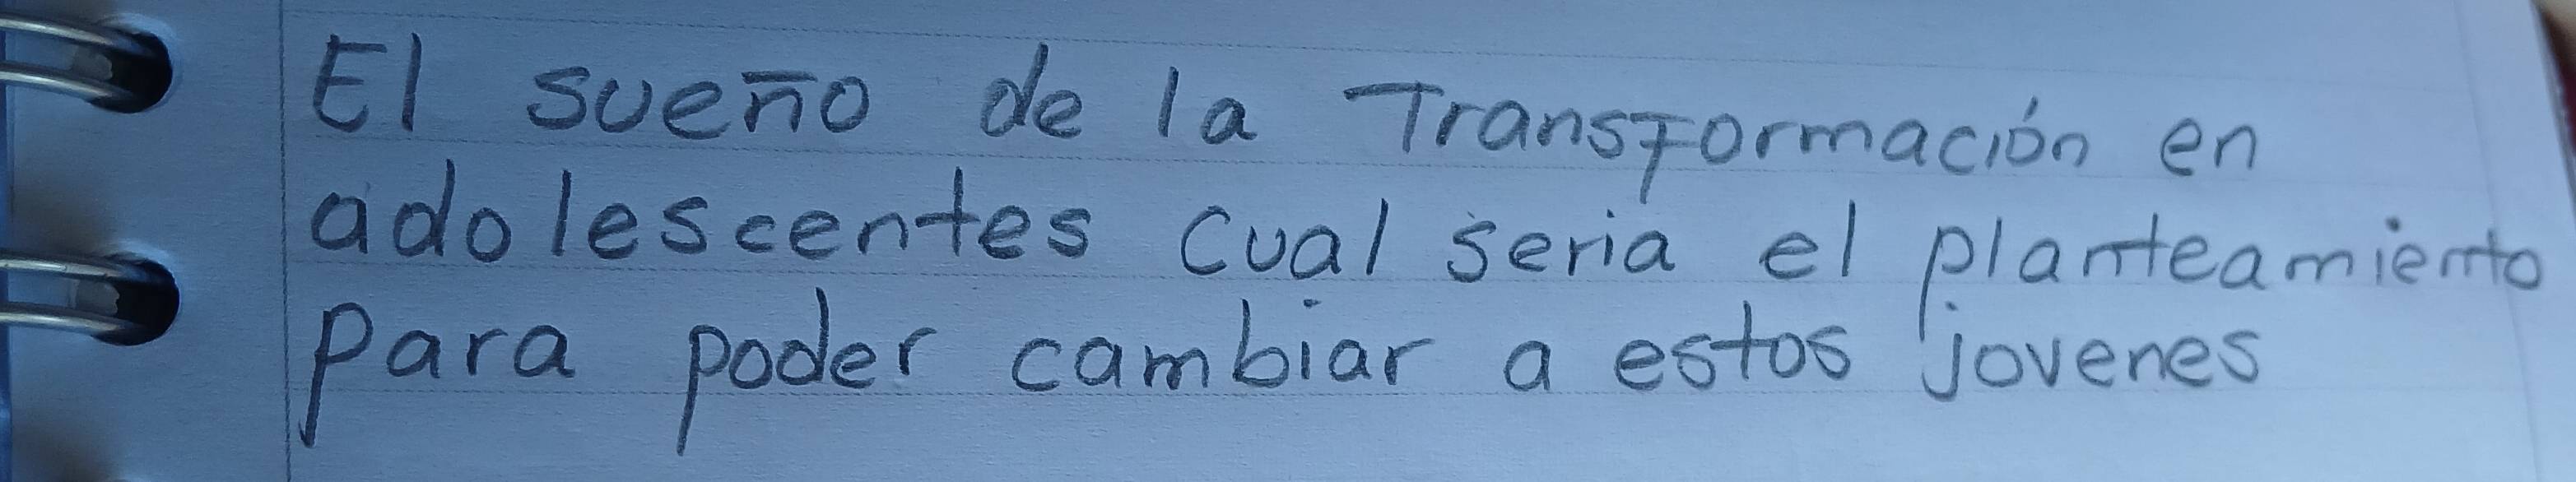 El sueño de la Transformación en
adolescentes cual seria el planteamiento
para poder cambiar a estos jovenes